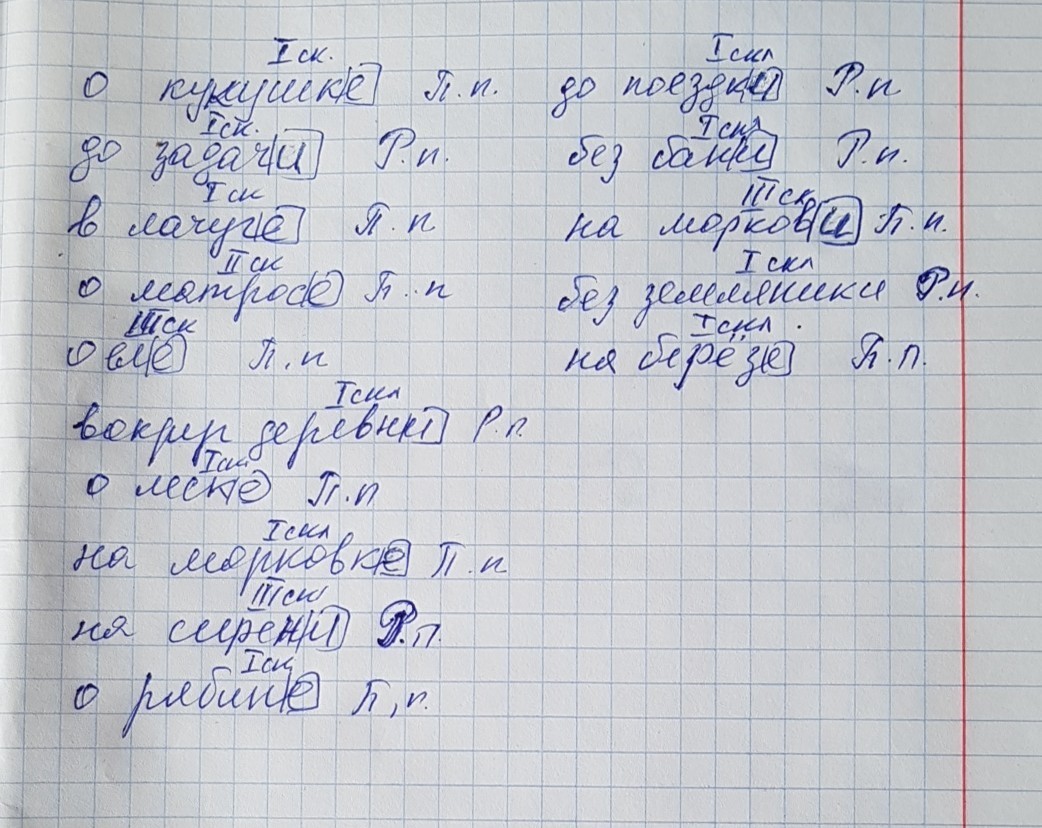 I ск.
о кукушке П.п.
I ск.
до задачи Р.п.
I ск
в лачуге П.п
II ск
о матросе П.п
III ск
о П.п
I скл
вокруг деревни Р.п.
I ск
о П.п
I скл
на морковке П.п
III ск
на сирени Р.п.
I ск
о рябине П,п.
I скл
до поездки Р.п
I скл
без банки Р.п.
III ск
на моркови П.п.
I скл
без земляники Р.п.
I скл.
на берёзе П.п.